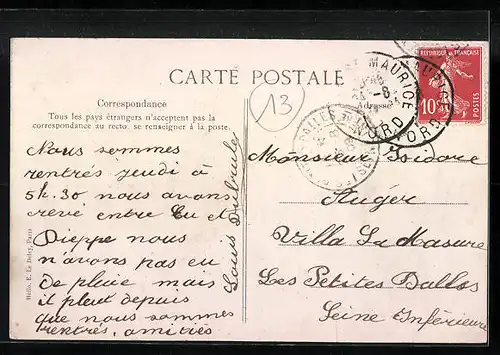 CARTE POSTALE
Correspondance
Tous les pays étrangers n'acceptent pas la
correspondance au recto. se renseigner à la poste.
Adresse
Nous sommes
rentrés jeudi à
5h.30 nous avons
crevé entre Eu et
Dieppe nous
n'avons pas eu
de pluie mais
il pleut depuis
que nous sommes
rentrés, amitiés
Louis
Hélio. E. Le Deley, Paris
13
Monsieur Isidore
Auger
Villa La Masure
Les Petites Dalles
Seine Inférieure
REPUBLIQUE FRANÇAISE
10c
POSTES
MAURICE
NORD